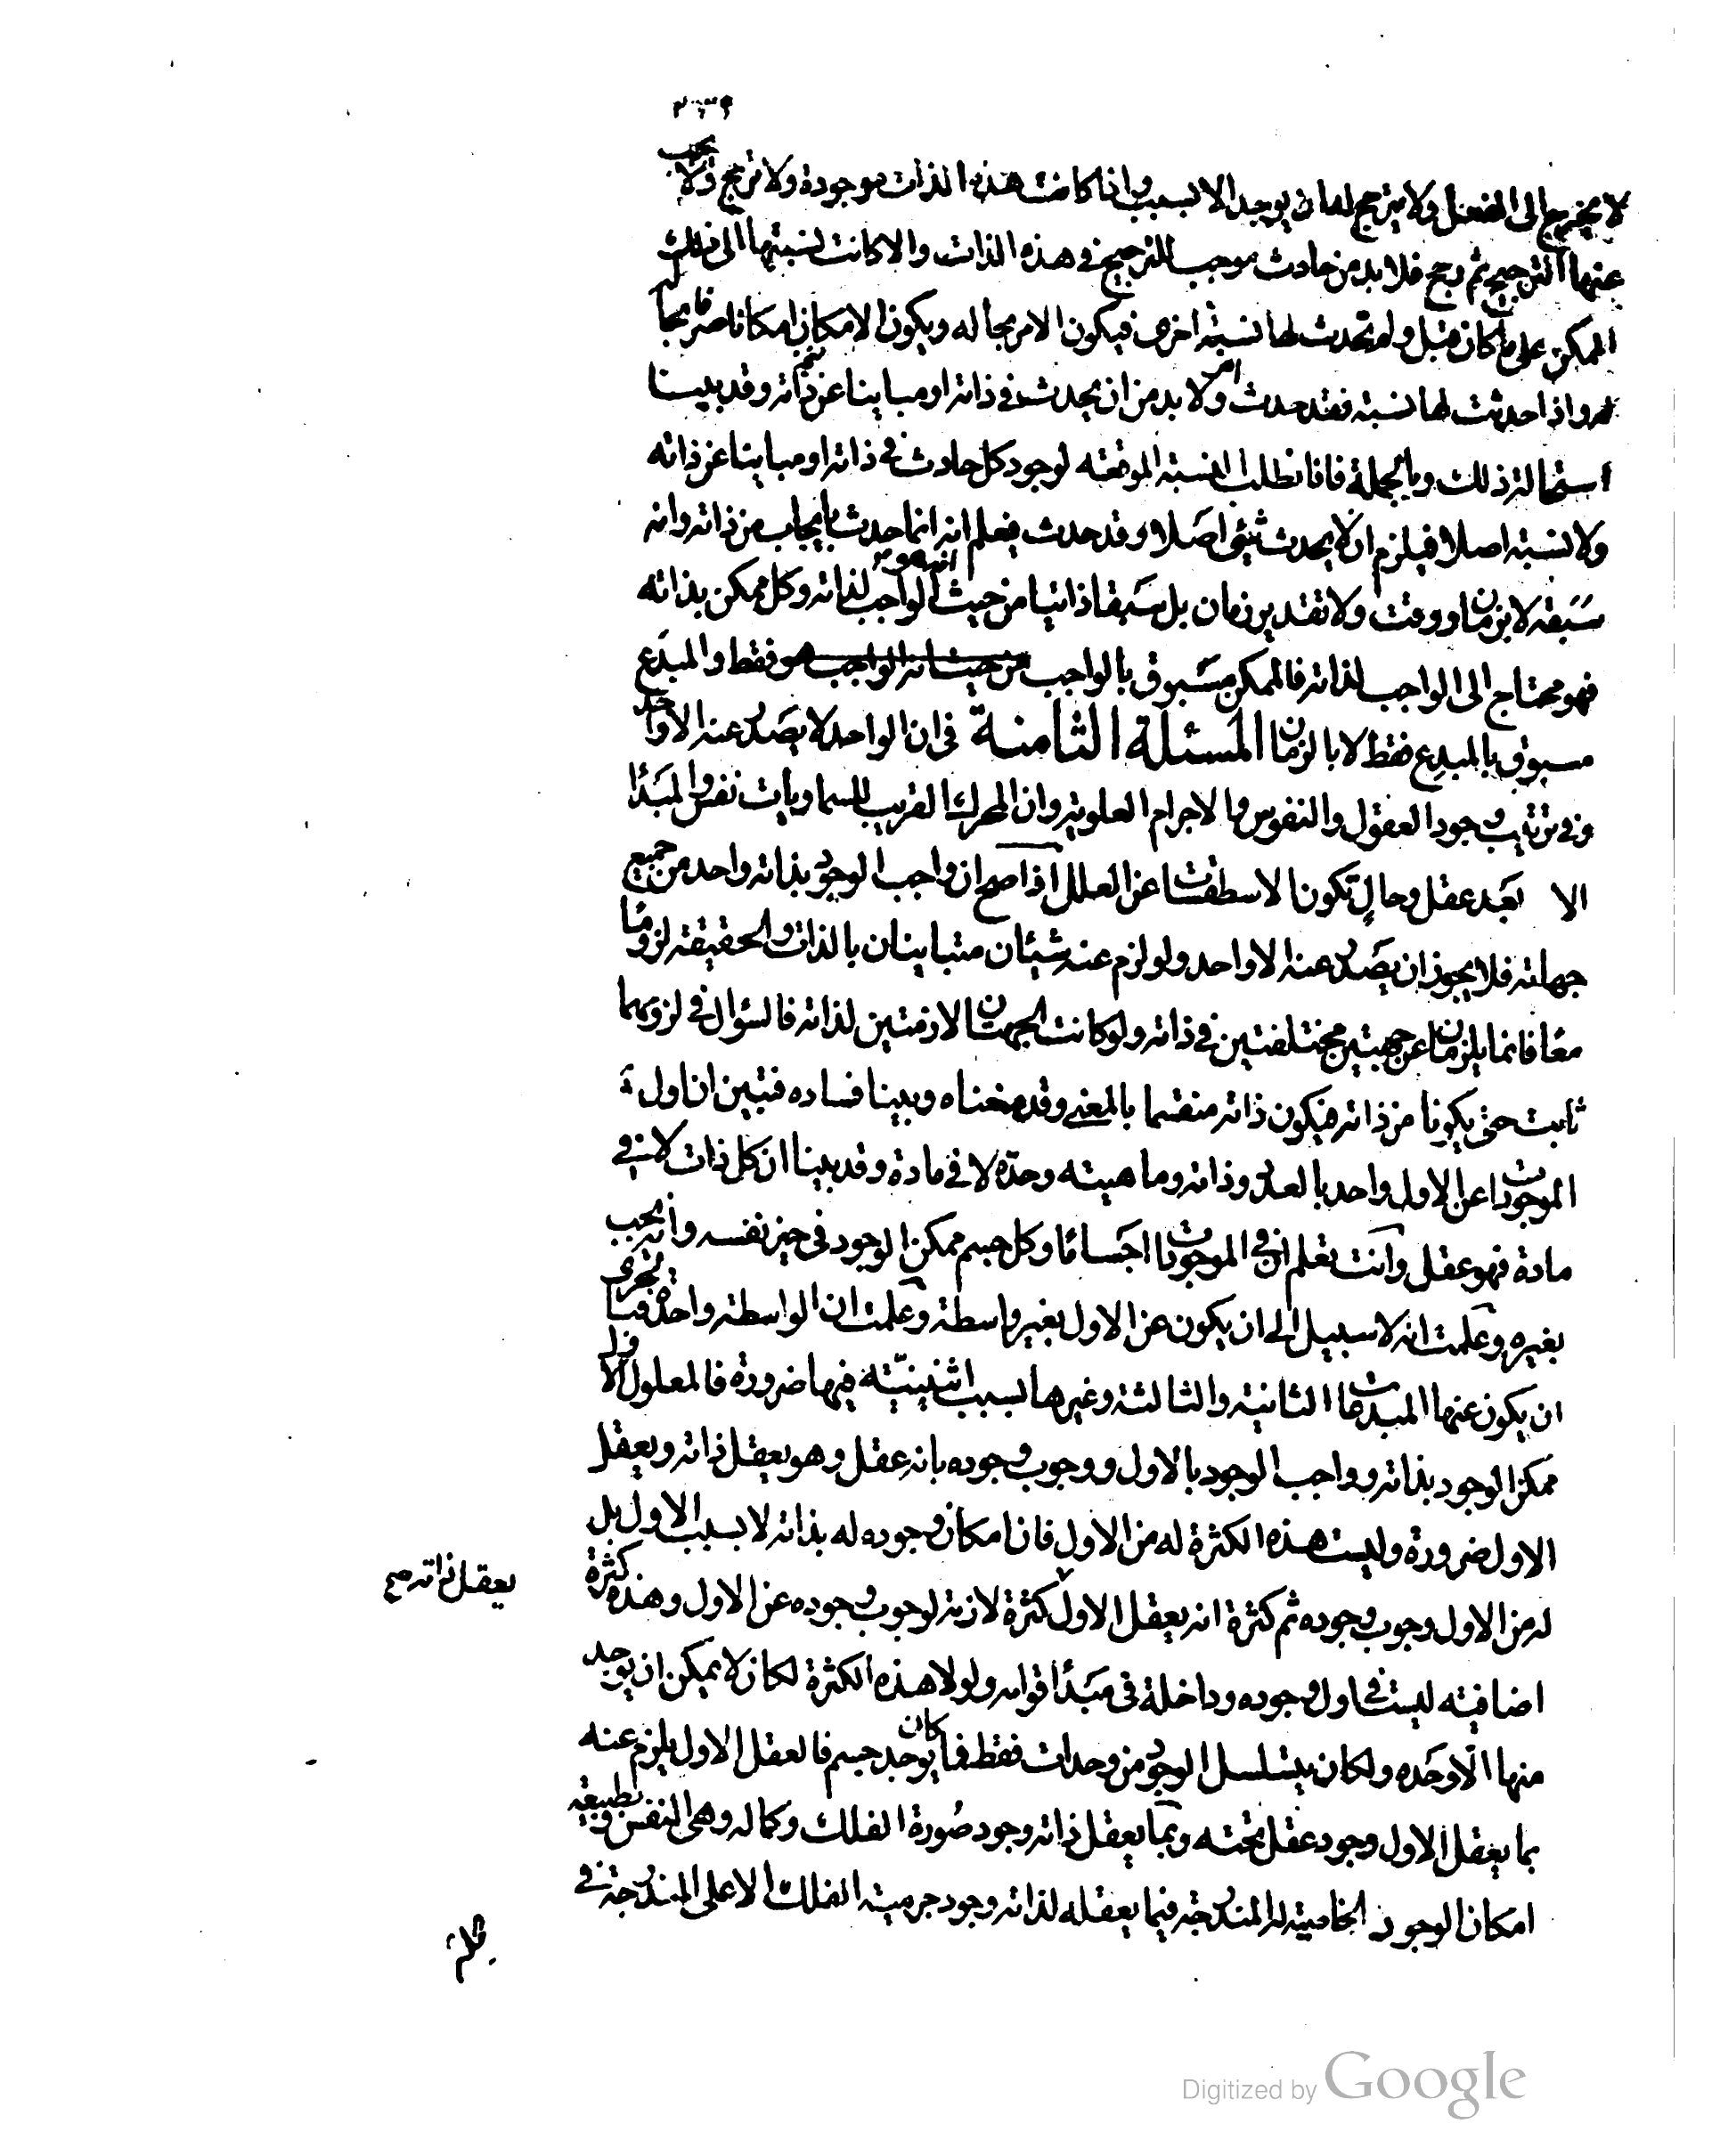 لا يخرج الى الفعل ولا يترجح لها ان يوجد الا بسبب واذا كانت هذه الذات موجودة ولا ترجح ولا يجب
عنها الترجيح ثم رجح فلا بد من حادث موجب للترجيح في هذه الذات والا كانت نسبتها الى ذلك
الممكن على ما كان قبل ولم تحدث لها نسبة اخرى فيكون الامر بحاله ويكون الامكان امكانا صرفا بحاله
واذا حدثت لها نسبة فقد حدث امر ولا بد من ان يحدث في ذاته او مباينا عن ذاته وقد بينا
استحالة ذلك وبالجملة فانا نطلب النسبة الموقعة لوجود كل حادث في ذاته او مباينا عن ذاته
ولا نسبة اصلا فيلزم ان لا يحدث شئ اصلا وقد حدث فعلم انه انما حدث بايجاب من ذاته وانه
سبقه لا بزمان ووقت ولا تقدير زمان بل سبقا ذاتيا من حيث انه هو الواجب لذاته وكل ممكن بذاته
فهو محتاج الى الواجب لذاته فالممكن مسبوق بالواجب من حيث انه الواجب هو فقط والمبدَع
مسبوق بالمبدِع فقط لا بالزمان المسئلة الثامنة في ان الواحد لا يصدر عنه الا واحد
وفي ترتيب وجود العقول والنفوس والاجرام العلوية وان المحرك القريب للسماويات نفس والمبدأ
الا بعد عقل وحال تكون الاسطقسات عن العلل اذا صح ان واجب الوجود بذاته واحد من جميع
جهاته فلا يجوز ان يصدر عنه الا واحد ولو لزم عنه شيئان متباينان بالذات والحقيقة لزوما
معا فانما يلزمان عن جهتين مختلفتين في ذاته ولو كانت الجهتان لازمتين لذاته فالسؤال في لزومهما
ثابت حتى يكونا من ذاته فيكون ذاته منقسما بالمعنى وقد منعناه وبينا فساده فتبين ان اول
الموجودات عن الاول واحد بالعدد وذاته وماهيته وحدة لا في مادة وقد بينا ان كل ذات لا في
مادة فهو عقل وانت تعلم ان في الموجودات اجساما وكل جسم ممكن الوجود في حيز نفسه وانه يجب
بغيره وعلمت انه لا سبيل الى ان يكون عن الاول بغير واسطة وعلمت ان الواسطة واحدة فبالحرى
ان يكون عنها المبدعات الثانية والثالثة وغيرها بسبب اثنينية فيها ضرورة فالمعلول الاول
ممكن الوجود بذاته وواجب الوجود بالاول ووجوب وجوده بانه عقل وهو يعقل ذاته ويعقل
الاول ضرورة وليست هذه الكثرة له من الاول فان امكان وجوده له بذاته لا بسبب الاول بل
له من الاول وجوب وجوده ثم كثرة انه يعقل الاول كثرة لازمة لوجوب وجوده عن الاول وهذه كثرة
يعقل ذاته صح
اضافية ليست في اول وجوده وداخلة في مبدأ قوامه ولولا هذه الكثرة لكان لا يمكن ان يوجد
منها الا وحده ولكان يتسلسل الوجود من وحدات فقط فما كان يوجد جسم فالعقل الاول يلزم عنه
بما يعقل الاول وجود عقل تحته وبما يعقل ذاته وجود صورة الفلك وكماله وهي النفس وبطبيعة
امكان الوجود الخاصية له المندرجة فيما يعقله لذاته وجود جرمية الفلك الاعلى المندرجة في
Digitized by Google